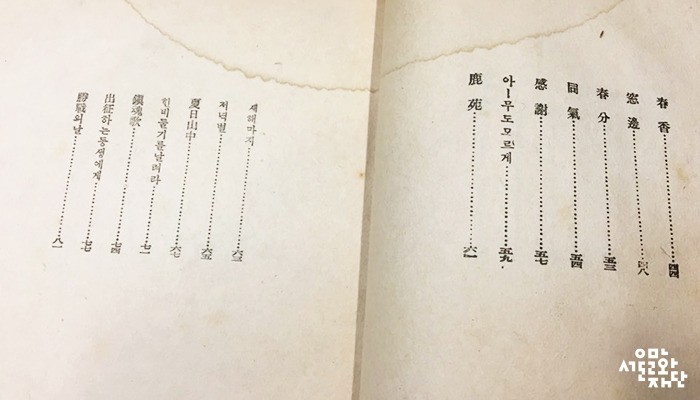 春香 四四
窓邊 四八
春分 五三
同氣 五四
感謝 五七
아ー무도모르게 五九
鹿苑 六一
새해마지 六三
저녁별 六五
夏日山中 六七
흰비둘기를날려라 七一
鎭魂歌 七四
出征하는동생에게 七七
勝戰의날 八一